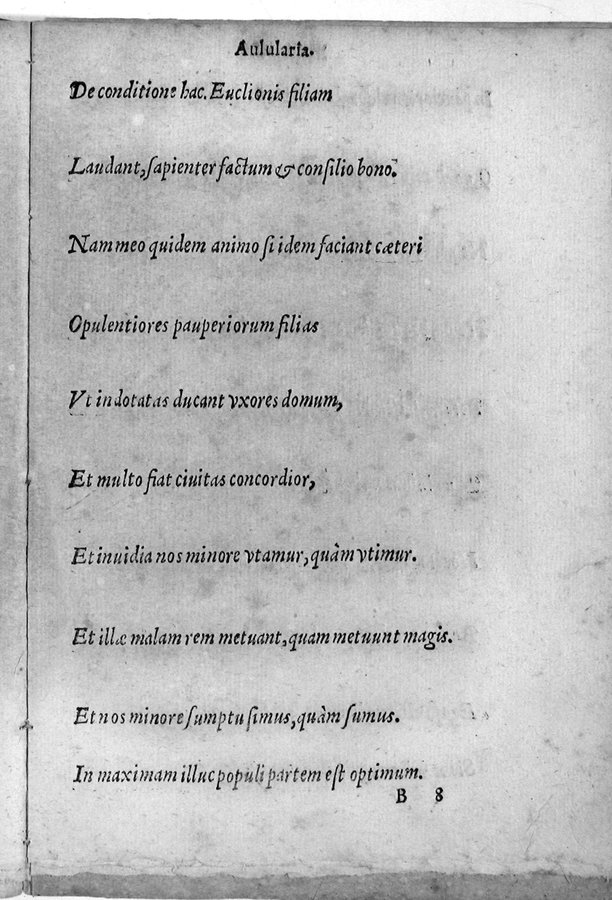 Aulularia.
De conditione hac. Euclionis filiam
Laudant, sapienter factum & consilio bono.
Nam meo quidem animo si idem faciant cæteri
Opulentiores pauperiorum filias
Vt indotatas ducant vxores domum,
Et multo fiat ciuitas concordior,
Et inuidia nos minore vtamur, quàm vtimur.
Et illæ malam rem metuant, quam metuunt magis.
Et nos minore sumptu simus, quàm sumus.
In maximam illuc populi partem est optimum.
B 8